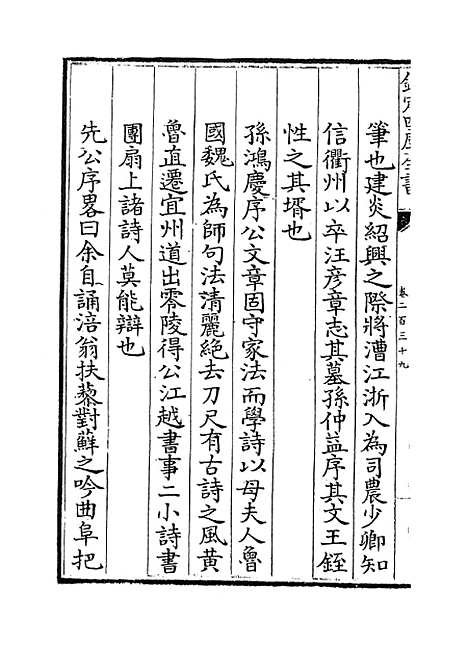 欽定四庫全書
卷二百三十九
筆也建炎紹興之際將漕江浙入為司農少卿知
信衢州以卒汪彦章志其墓孫仲益序其文王銍
性之其壻也
孫鴻慶序公文章固守家法而學詩以母夫人魯
國魏氏為師句法清麗絶去刀尺有古詩之風黄
魯直遷宜州道出零陵得公江越書事二小詩書
團扇上諸詩人莫能辯也
先公序畧曰余自誦涪翁扶藜對蘇之吟曲阜把